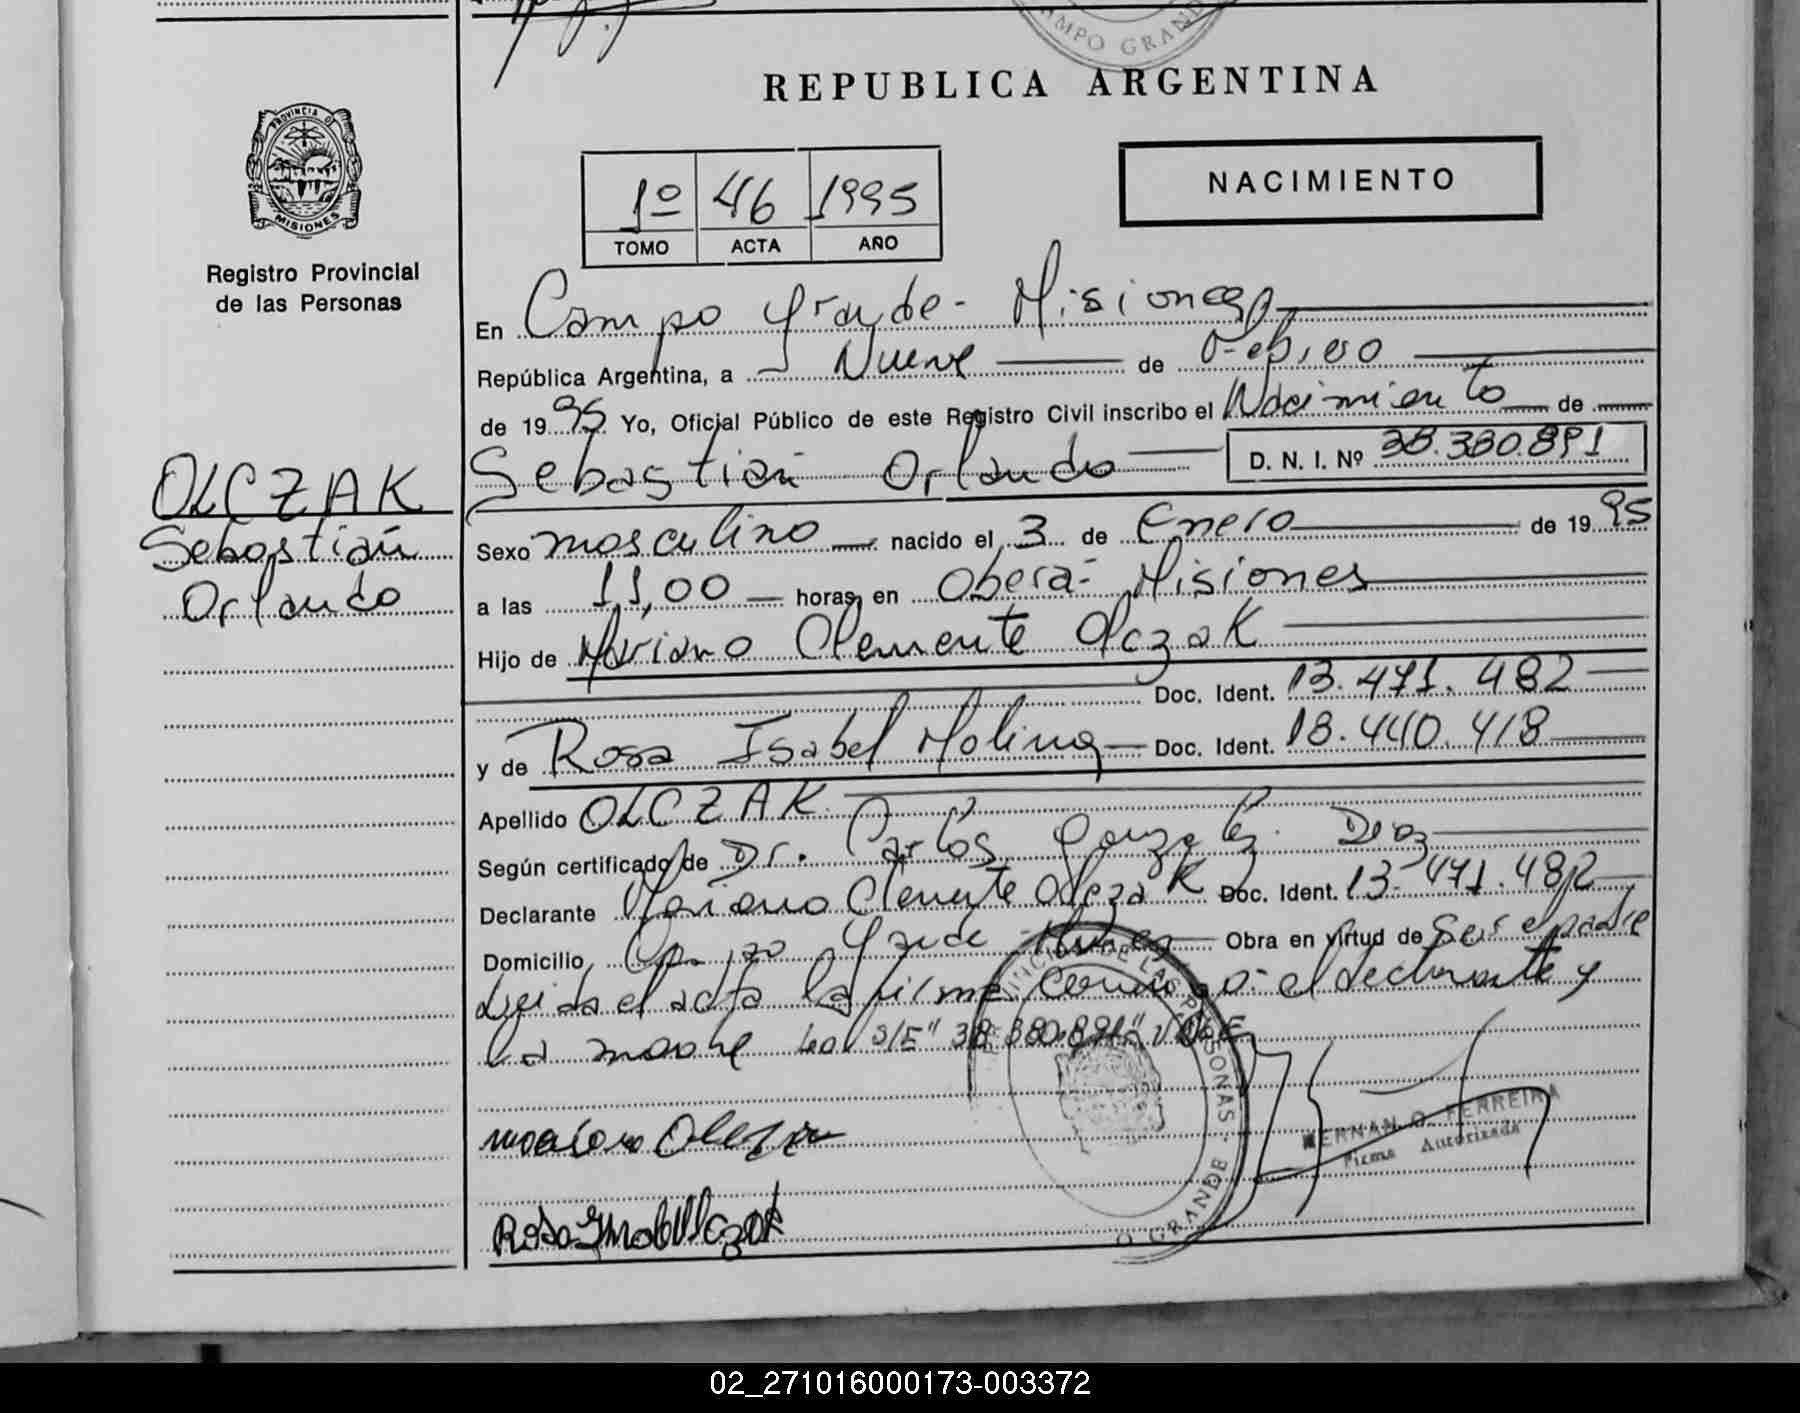 CAMPO GRAND
REPUBLICA ARGENTINA
PROVINCIA D
MISIONES
Registro Provincial
de las Personas
1º 46 1995
TOMO ACTA AÑO
NACIMIENTO
En Campo Grande - Misiones
República Argentina, a Nueve de Febrero
de 1995 Yo, Oficial Público de este Registro Civil inscribo el Nacimiento de
Sebastián Orlando D. N. I. Nº 38.380.891
OLCZAK
Sebastián
Orlando
Sexo masculino nacido el 3 de Enero de 1995
a las 11,00 horas, en Oberá - Misiones
Hijo de Mariano Clemente Olczak
Doc. Ident. 13.471.482
y de Rosa Isabel Molina Doc. Ident. 18.440.418
Apellido OLCZAK
Según certificado de Dr. Carlos Gonzalez Diaz
Declarante Mariano Clemente Olczak Doc. Ident. 13.471.482
Domicilio Campo Grande - Mnes Obra en virtud de ser el padre
Leida el acta la firma conmigo: el declarante y
la madre S/E" 38.380.891" VALE
HERNAN O. FERREIRA
Firma Autorizada
Mariano Olczak
Rosa Isabel Olczak
PROVINCIAL DE LAS PERSONAS - O GRANDE
02_271016000173-003372